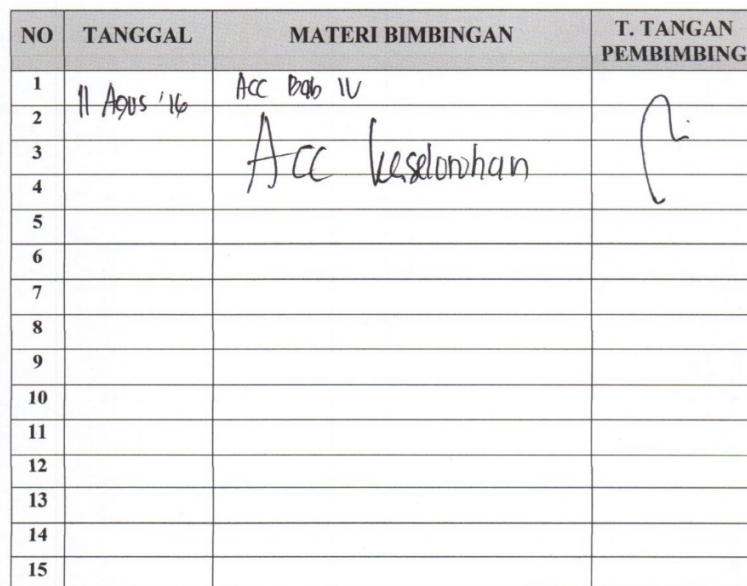 NO TANGGAL MATERI BIMBINGAN T. TANGAN PEMBIMBING
1 11 Agus '16 Acc Bab IV
2
3 Acc keselorohan
4
5
6
7
8
9
10
11
12
13
14
15